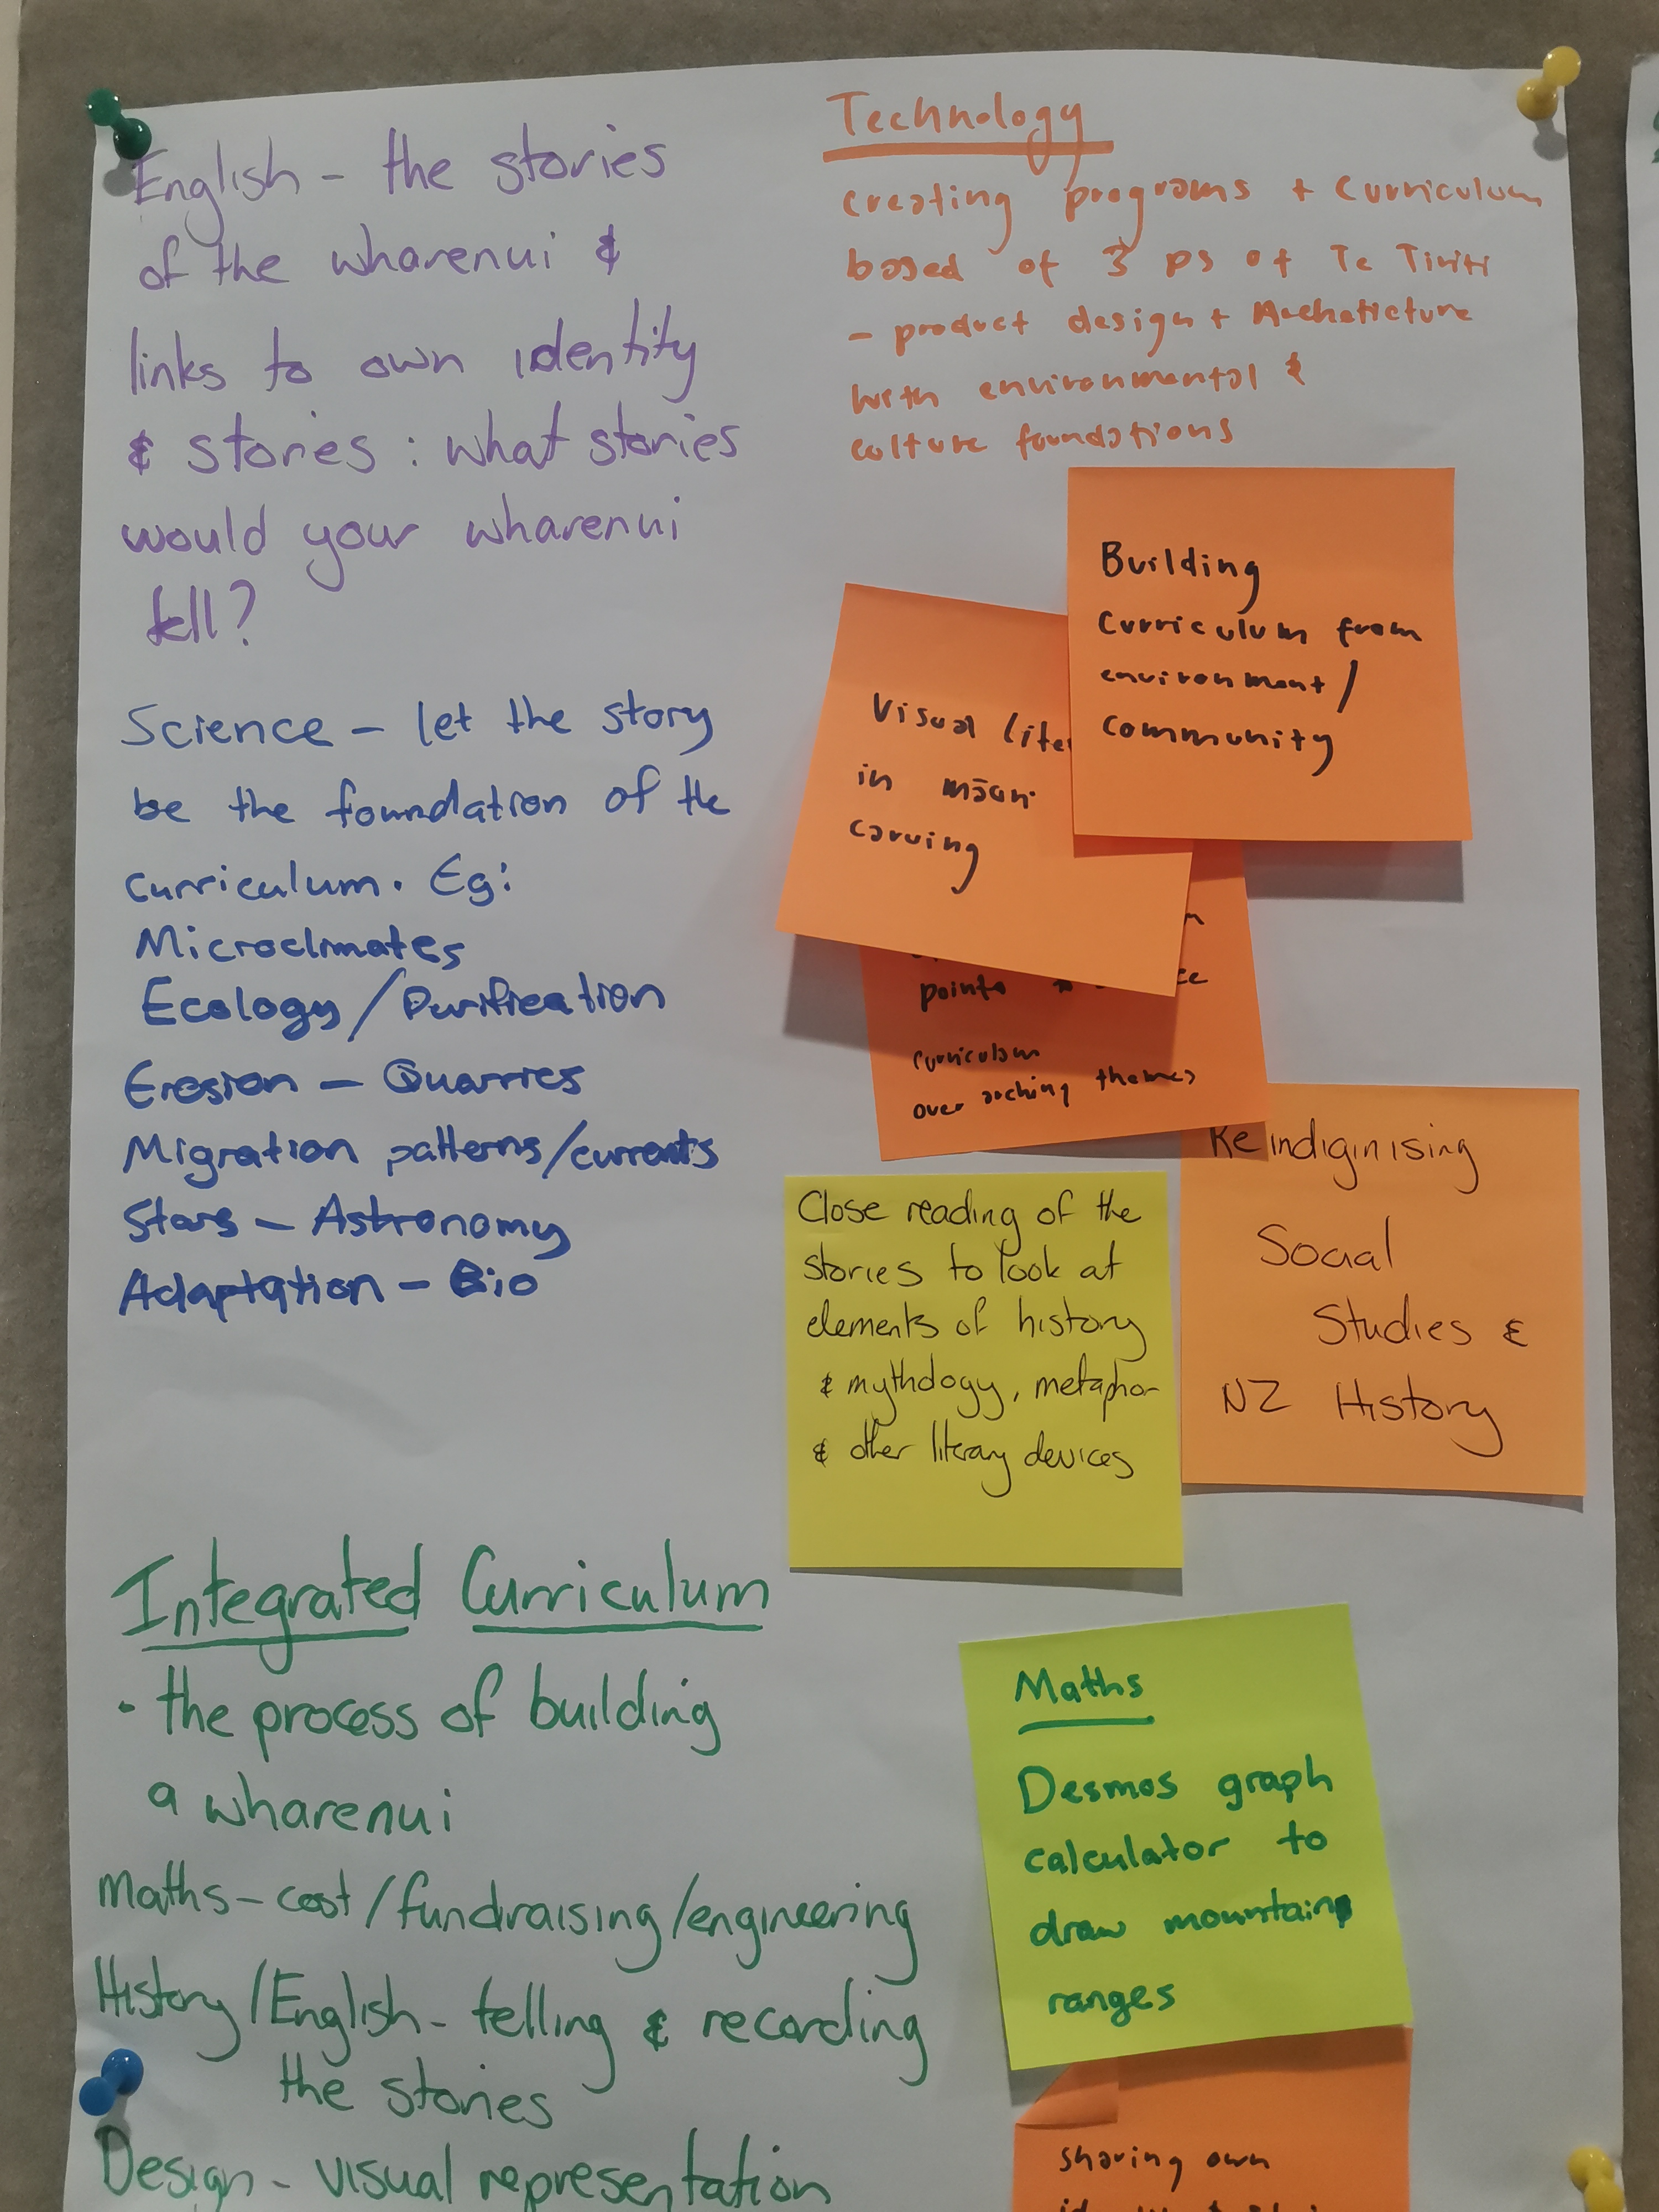 English - the stories
of the wharenui &
links to own identity
& stories : what stories
would your wharenui
tell?
Science - let the story
be the foundation of the
curriculum. Eg:
Microclimates
Ecology/Purification
Erosion - Quarries
Migration patterns/currents
Stars - Astronomy
Adaptation - Bio
Integrated Curriculum
· the process of building
a wharenui
Maths - cost/fundraising/engineering
History/English - telling & recording
the stories
Design - visual representation
Technology
creating programs + curriculum
based of 3 ps of Te Tiriti
- product design + Archaticture
with environmental &
culture foundations
Building
Curriculum from
environment/
community
Visual
in
carving
points
curriculum
over arching themes
Reindiginising
Social
Studies &
NZ History
Close reading of the
stories to look at
elements of history
& mythology, metaphor
& other literary devices
Maths
Desmos graph
calculator to
draw mountain
ranges
sharing own